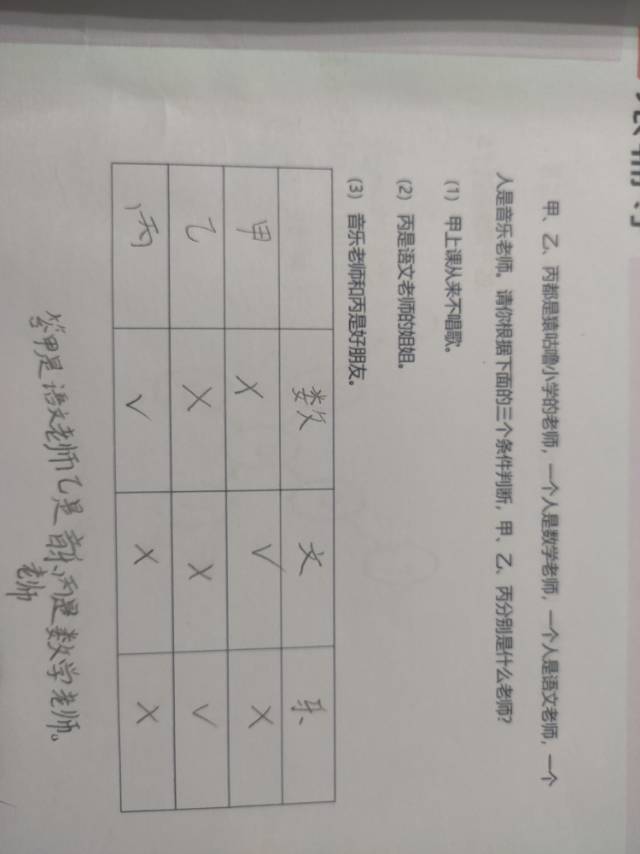 甲、乙、丙都是猿咕噜小学的老师，一个人是数学老师，一个人是语文老师，一个
人是音乐老师。请你根据下面的三个条件判断，甲、乙、丙分别是什么老师？
(1) 甲上课从来不唱歌。
(2) 丙是语文老师的姐姐。
(3) 音乐老师和丙是好朋友。
数 文 乐
甲 X √ X
乙 X X √
丙 √ X X
答甲是语文老师乙是音乐丙是数学老师。
老师